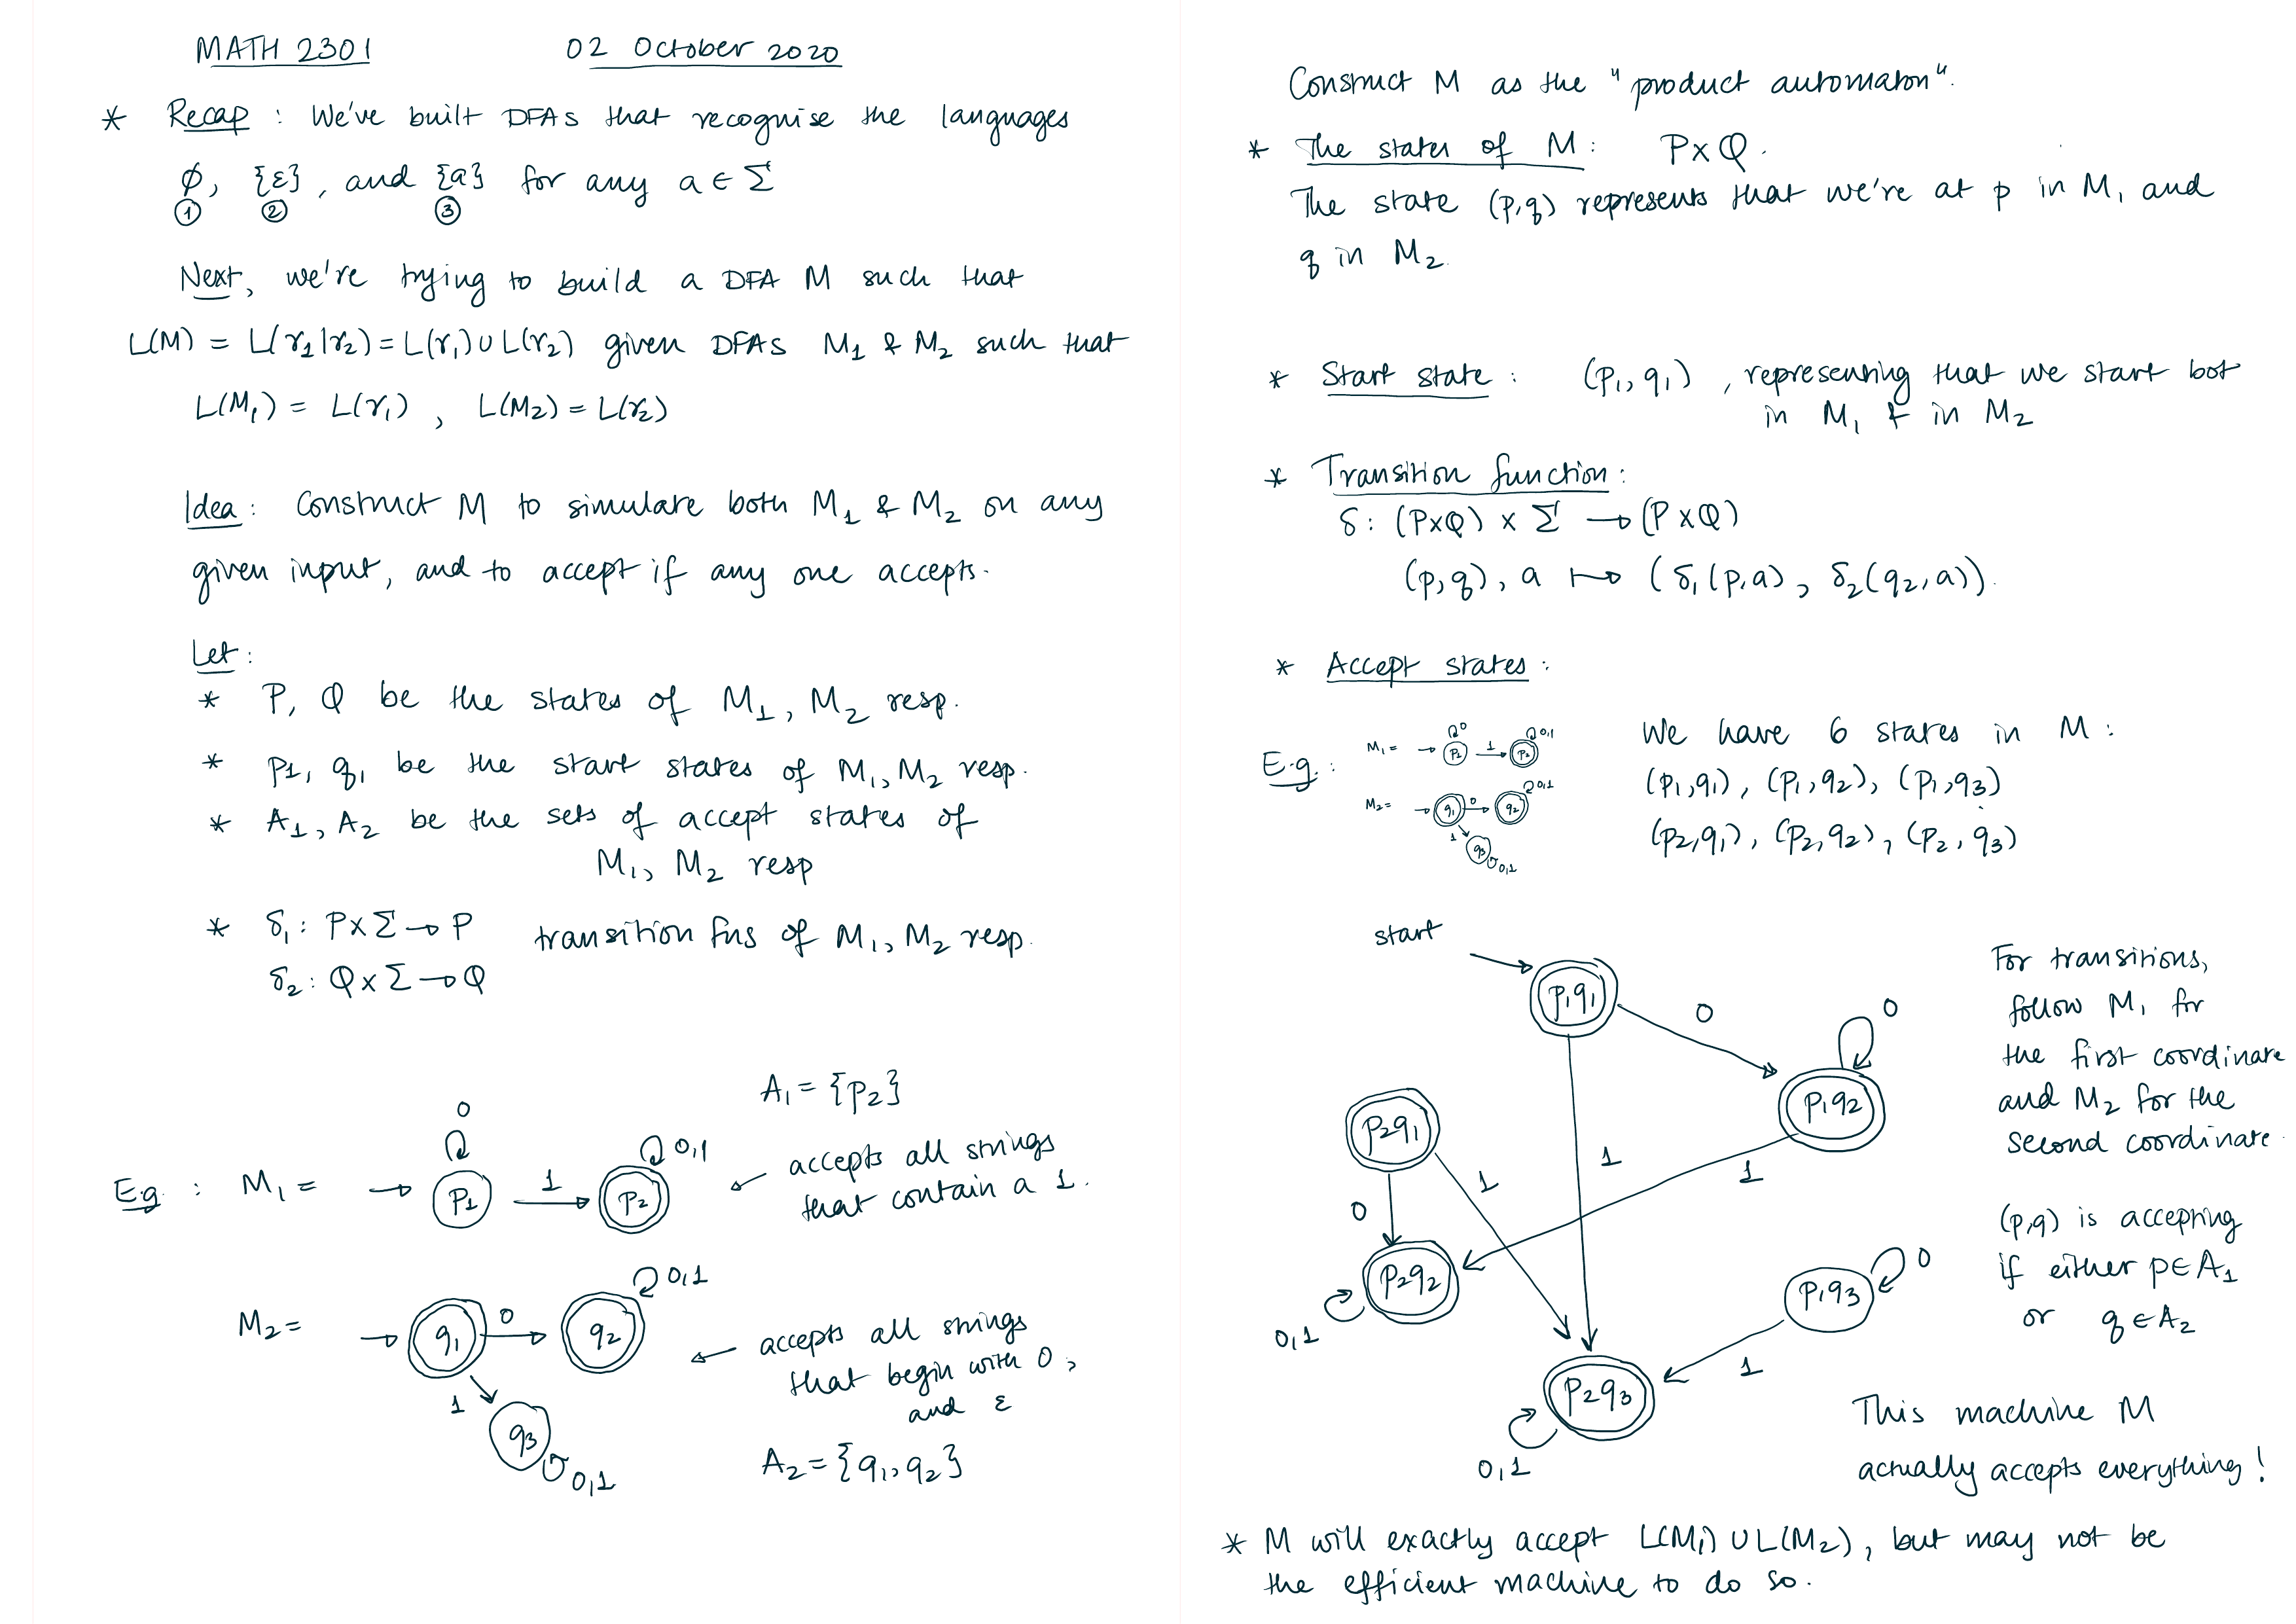 MATH 2301 02 October 2020
* Recap : We've built DFAs that recognise the languages
∅, {ε}, and {a} for any a ∈ Σ
① ② ③
Next, we're trying to build a DFA M such that
L(M) = L(r₁|r₂) = L(r₁) ∪ L(r₂) given DFAs M₁ & M₂ such that
L(M₁) = L(r₁) , L(M₂) = L(r₂)
Idea : Construct M to simulate both M₁ & M₂ on any
given input, and to accept if any one accepts.
Let :
* P, Q be the states of M₁, M₂ resp.
* p₁, q₁ be the start states of M₁, M₂ resp.
* A₁, A₂ be the sets of accept states of
M₁, M₂ resp
* δ₁ : P×Σ → P transition fns of M₁, M₂ resp.
δ₂ : Q×Σ → Q
A₁ = {p₂}
E.g. : M₁ = → p₁ 0 1 → p₂ 0,1
← accepts all strings
that contain a 1.
M₂ = → q₁ 0 → q₂ 0,1
1 q₃ 0,1
← accepts all strings
that begin with 0,
and ε
A₂ = {q₁, q₂}
Construct M as the "product automaton".
* The states of M : P×Q.
The state (p,q) represents that we're at p in M₁ and
q in M₂.
* Start state : (p₁, q₁) , representing that we start bot
in M₁ & in M₂
* Transition function :
δ : (P×Q) × Σ → (P×Q)
(p,q), a ↦ (δ₁(p,a), δ₂(q₂,a)).
* Accept states :
E.g. : M₁ = → p₁ 0 1 → p₂ 0,1
M₂ = → q₁ 0 → q₂ 0,1
1 q₃ 0,1
We have 6 states in M :
(p₁,q₁), (p₁,q₂), (p₁,q₃)
(p₂,q₁), (p₂,q₂), (p₂,q₃)
start
p₁q₁ 0
p₁q₂ 0
p₂q₁ 1 1 1
0
p₂q₂ 0,1
p₁q₃ 0
1
p₂q₃ 0,1
For transitions,
follow M₁ for
the first coordinate
and M₂ for the
second coordinate.
(p,q) is accepting
if either p∈A₁
or q∈A₂
This machine M
actually accepts everything!
* M will exactly accept L(M₁) ∪ L(M₂), but may not be
the efficient machine to do so.